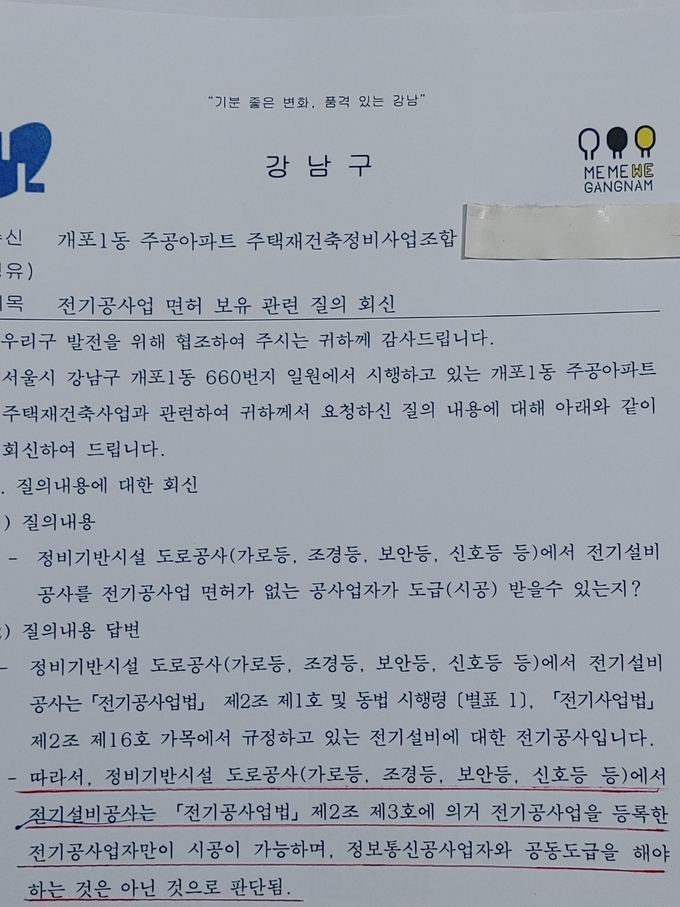 “기분 좋은 변화, 품격 있는 강남”
강 남 구
ME ME WE
GANGNAM
신
개포1동 주공아파트 주택재건축정비사업조합
유)
목
전기공사업 면허 보유 관련 질의 회신
우리구 발전을 위해 협조하여 주시는 귀하께 감사드립니다.
서울시 강남구 개포1동 660번지 일원에서 시행하고 있는 개포1동 주공아파트
주택재건축사업과 관련하여 귀하께서 요청하신 질의 내용에 대해 아래와 같이
회신하여 드립니다.
. 질의내용에 대한 회신
) 질의내용
- 정비기반시설 도로공사(가로등, 조경등, 보안등, 신호등 등)에서 전기설비
공사를 전기공사업 면허가 없는 공사업자가 도급(시공) 받을수 있는지?
) 질의내용 답변
- 정비기반시설 도로공사(가로등, 조경등, 보안등, 신호등 등)에서 전기설비
공사는 「전기공사업법」 제2조 제1호 및 동법 시행령 [별표 1], 「전기사업법」
제2조 제16호 가목에서 규정하고 있는 전기설비에 대한 전기공사입니다.
- 따라서, 정비기반시설 도로공사(가로등, 조경등, 보안등, 신호등 등)에서
전기설비공사는 「전기공사업법」 제2조 제3호에 의거 전기공사업을 등록한
전기공사업자만이 시공이 가능하며, 정보통신공사업자와 공동도급을 해야
하는 것은 아닌 것으로 판단됨.